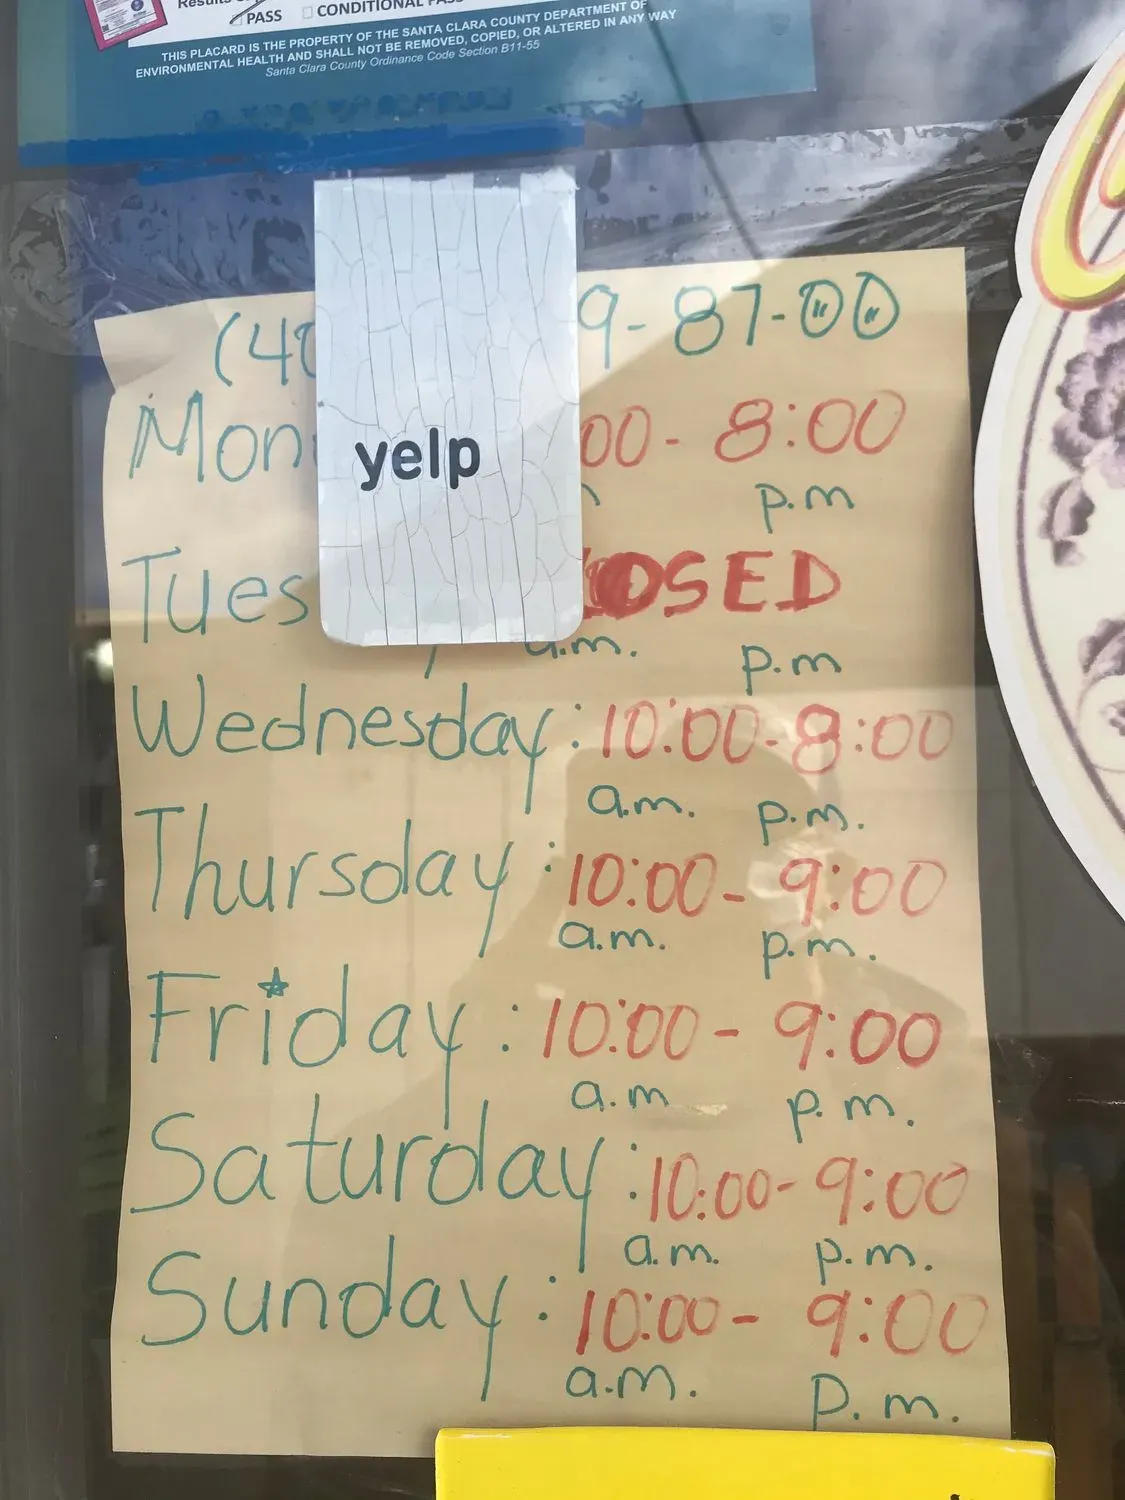 PASS
CONDITIONAL
THIS PLACARD IS THE PROPERTY OF THE SANTA CLARA COUNTY DEPARTMENT OF
ENVIRONMENTAL HEALTH AND SHALL NOT BE REMOVED, COPIED, OR ALTERED IN ANY WAY
Santa Clara County Ordinance Code Section B11-55
yelp
9-87-00
8:00
p.m
Tues OSED
a.m. p.m
Wednesday: 10:00-8:00
a.m. p.m.
Thursday: 10:00-9:00
a.m. p.m.
Friday: 10:00-9:00
a.m p.m.
Saturday: 10:00-9:00
a.m. p.m.
Sunday: 10:00-9:00
a.m. p.m.